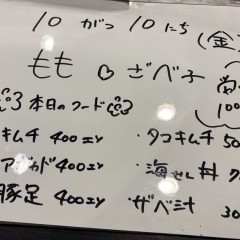 10 がつ 10 にち (金)
もも ♡ ざべ子
本日のフード
キムチ 400エン ・タコキムチ 50
アボカド 400エン ・海せん丼
豚足 400エン ザベ汁 30